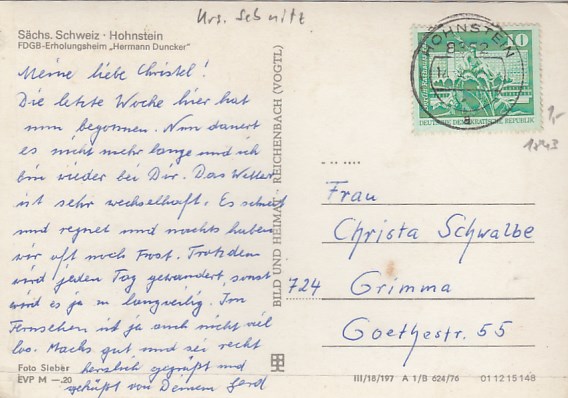 Krs. Sebnitz
Sächs. Schweiz · Hohnstein
FDGB-Erholungsheim „Hermann Duncker"
Meine liebe Christel!
Die letzte Woche hier hat
nun begonnen. Nun dauert
es nicht mehr lange und ich
bin wieder bei Dir. Das Wetter
ist sehr wechselhaft. Es schneit
und regnet und nachts haben
wir oft noch Frost. Trotzdem
wird jeden Tag gewandert, sonst
wird es ja zu langweilig. Im
Fernsehen ist ja auch nicht viel
los. Machs gut und sei recht
herzlich gegrüßt und
geküßt von Deinem Gerd
Foto Sieber
EVP M —.20
BILD UND HEIMAT REICHENBACH (VOGTL)
HOHNSTEIN
8352
a
10
DEUTSCHE DEMOKRATISCHE REPUBLIK
1,-
1843
Frau
Christa Schwalbe
724 Grimma
Goethestr. 55
III/18/197 A 1/B 624/76 01 12 15 148